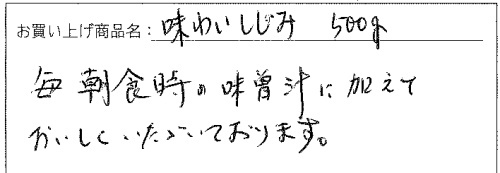 お買い上げ商品名：味わいしじみ 500g
毎朝食時の味曽汁に加えて
おいしくいただいております。